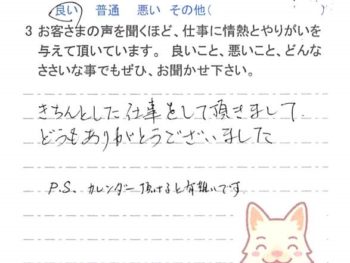 良い 普通 悪い その他(
3 お客さまの声を聞くほど、仕事に情熱とやりがいを
与えて頂いています。 良いこと、悪いこと、どんな
ささいな事でもぜひ、お聞かせ下さい。
きちんとした仕事をして頂きまして
どうもありがとうございました
P.S. カレンダー頂けると有難いです